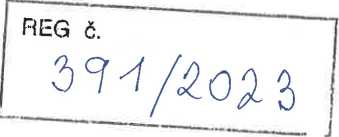 REG č.
391/2023